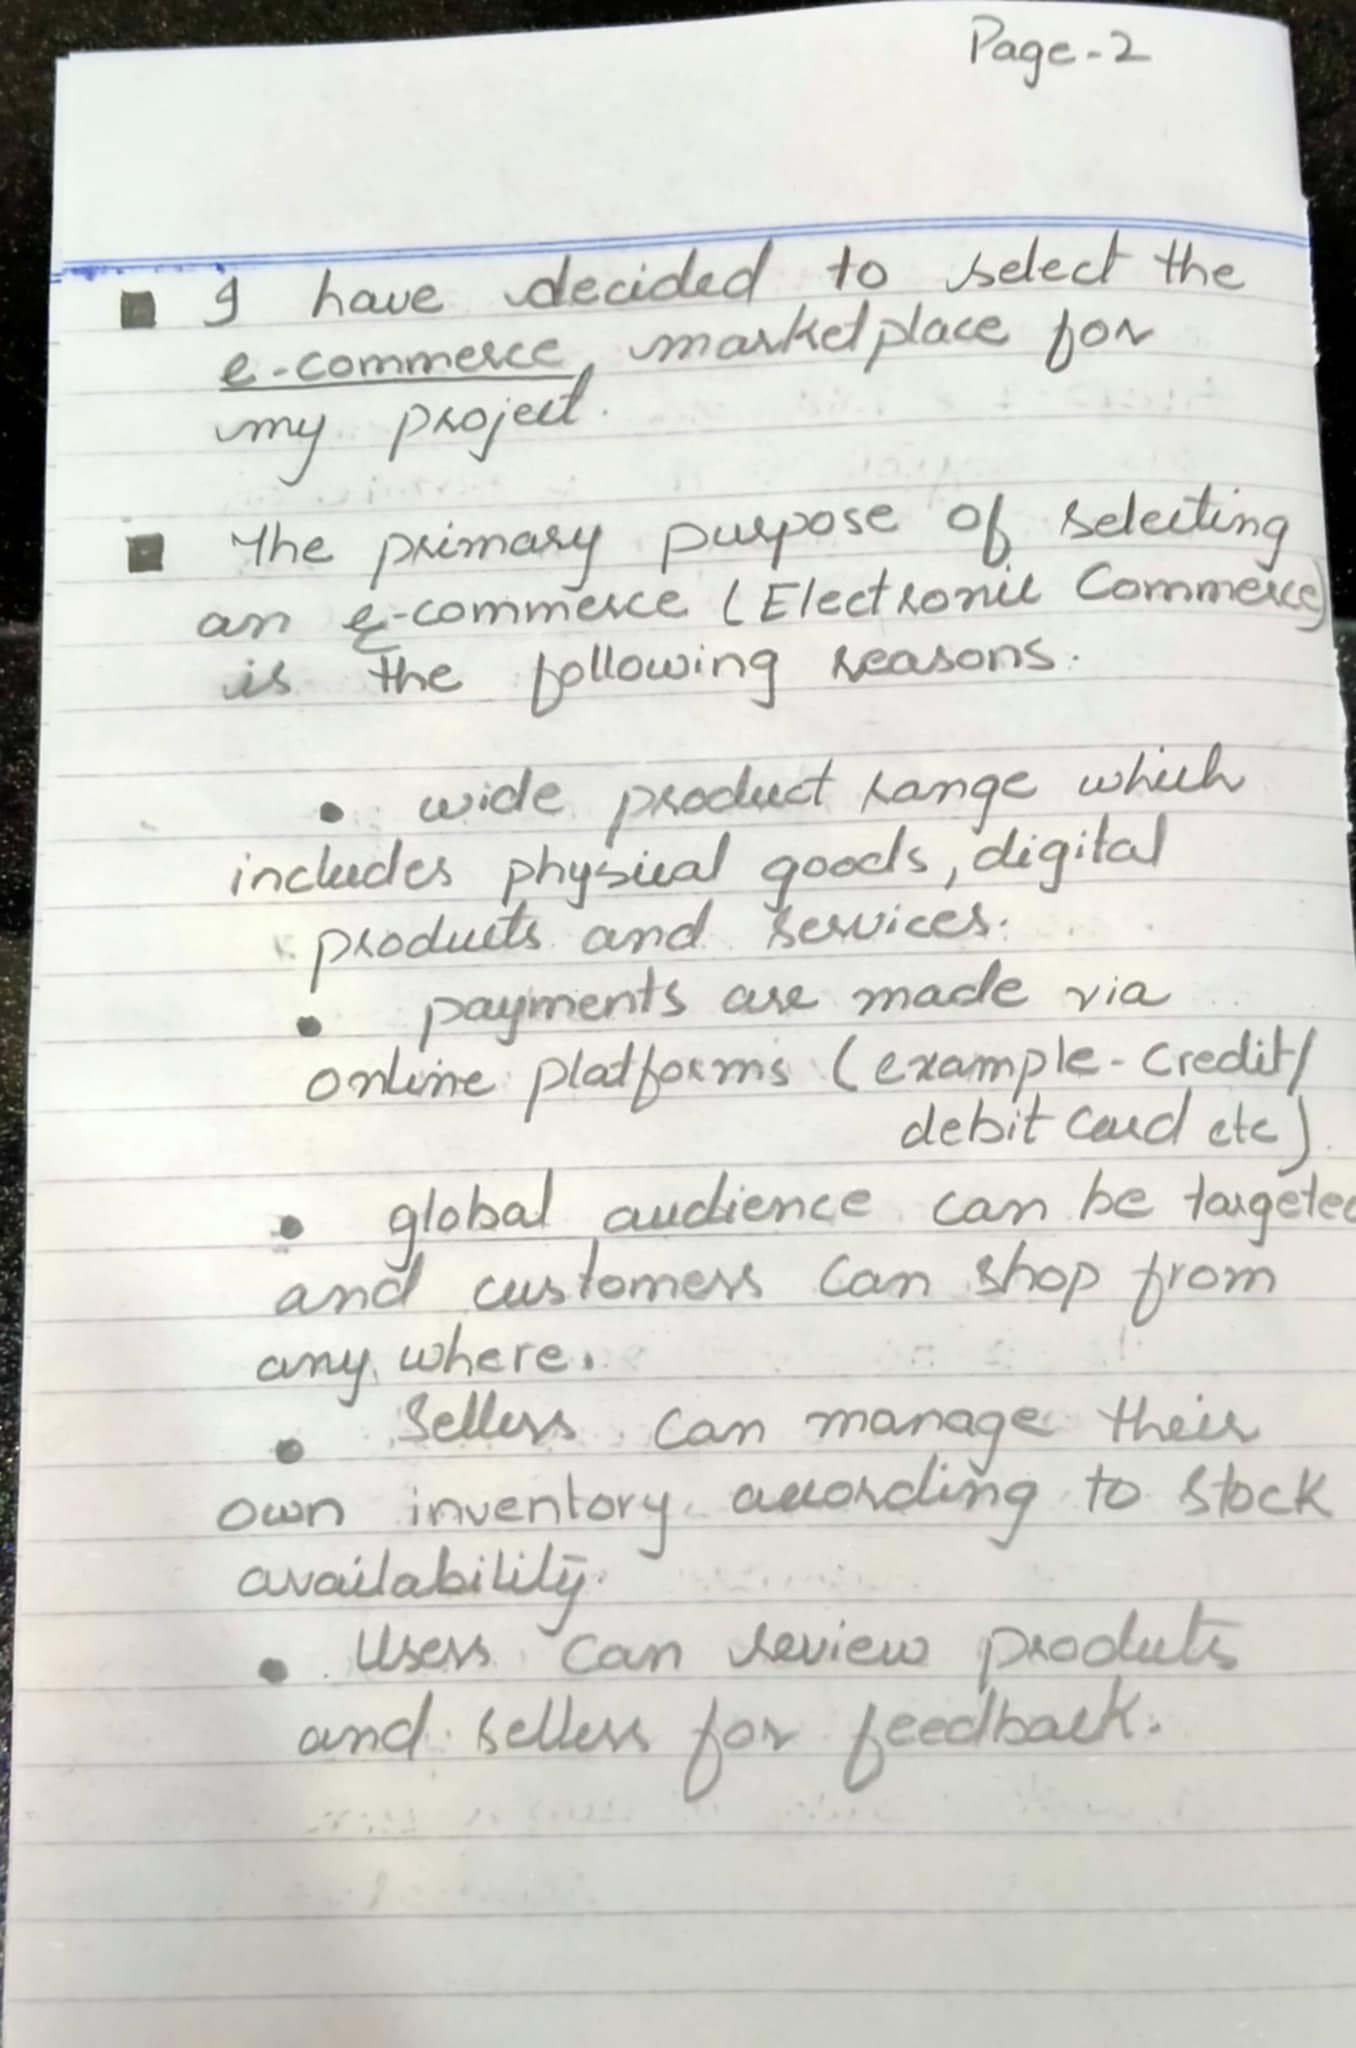 Page-2
■ I have decided to select the
e-commerce marketplace for
my project.
■ The primary purpose of selecting
an e-commerce (Electronic Commerce)
is the following reasons.
• wide product range which
includes physical goods, digital
products and services.
• payments are made via
online platforms (example-Credit/
debit card etc)
• global audience can be targeted
and customers can shop from
any where.
• Sellers can manage their
own inventory according to stock
availability.
• Users can review products
and sellers for feedback.